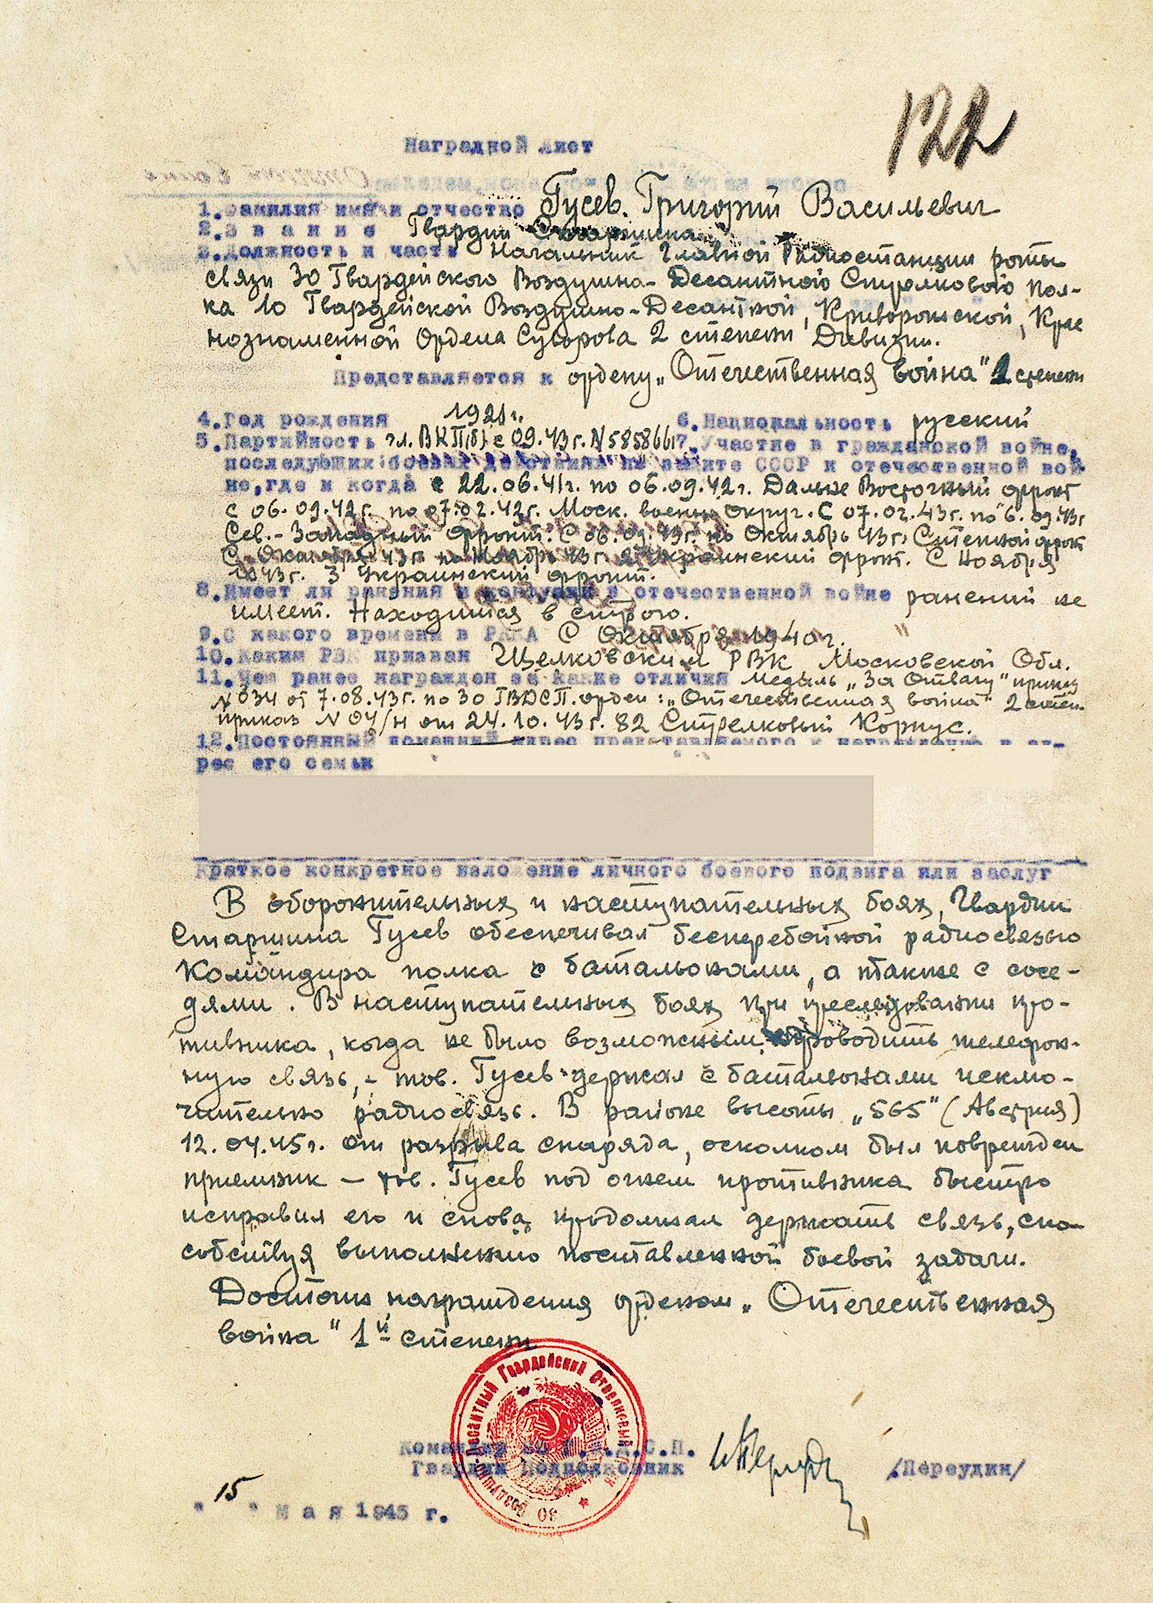 122
Наградной лист
1.Фамилия имя и отчество Гусев. Григорий Васильевич
2.Звание Гвардии Старшина
3.Должность и часть Начальник Главной Радиостанции роты
связи 30 Гвардейского Воздушно-Десантного Стрелкового пол-
ка 10 Гвардейской Воздушно-Десантной, Криворожской, Крас
нознаменной Ордена Суворова 2 степени Дивизии.
Представляется к ордену „Отечественная война" 1 степени
4.Год рождения 1921г. 6.Национальность русский
5.Партийность чл. ВКП(б) с 09.43г. N5858661 7.Участие в гражданской войне,
последующих боевых действиях по защите СССР и отечественной вой-
не,где и когда с 22.06.41г. по 06.09.42г. Дальне Восточный фронт
с 06.09.42г. по 07.02.42г. Моск. военн. Округ. С 07.02.43г. по 6.09.43г
Сев.-Западный фронт. С 06.09.43г. по Октябрь 43г. Степной фронт
С Октября 43г. по Ноябрь 43г. 2 Украинский фронт. С Ноября
1943г. 3 Украинский фронт.
8.Имеет ли ранения и контузии в отечественной войне ранений не
имеет. Находится в строю.
9.С какого времени в РККА С Октября 1940г.
10.Каким РВК призван Щелковским РВК Московской Обл.
11.Чем ранее награжден за какие отличия Медаль „За Отвагу" приказ
N 034 от 7.08.43г. по 30 ГВДСП. орден: „Отечественная война" 2 степ.
приказ N 04/н от 24.10.43г. 82 Стрелковый Корпус.
12.Постоянный домашний адрес представляемого к награждению и ад-
рес его семьи
Краткое конкретное изложение личного боевого подвига или заслуг
В оборонительных и наступательных боях, Гвардии
Старшина Гусев обеспечивал бесперебойной радиосвязью
Командира полка с батальонами, а также с сосе-
дями. В наступательных боях при преследовании про-
тивника, когда не было возможным проводить телефон-
ную связь, - тов. Гусев держал с батальонами исклю-
чительно радиосвязь. В районе высоты „565" (Австрия)
12.04.45г. от разрыва снаряда, осколком был поврежден
приемник — тов. Гусев под огнем противника быстро
исправил его и снова продолжал держать связь, спо-
собствуя выполнению поставленной боевой задачи.
Достоин награждения орденом „Отечественная
война" 1й степени
Командир 30 Г.В.Д.С.П.
Гвардии Подполковник /Переудин/
"15" Мая 1945 г.